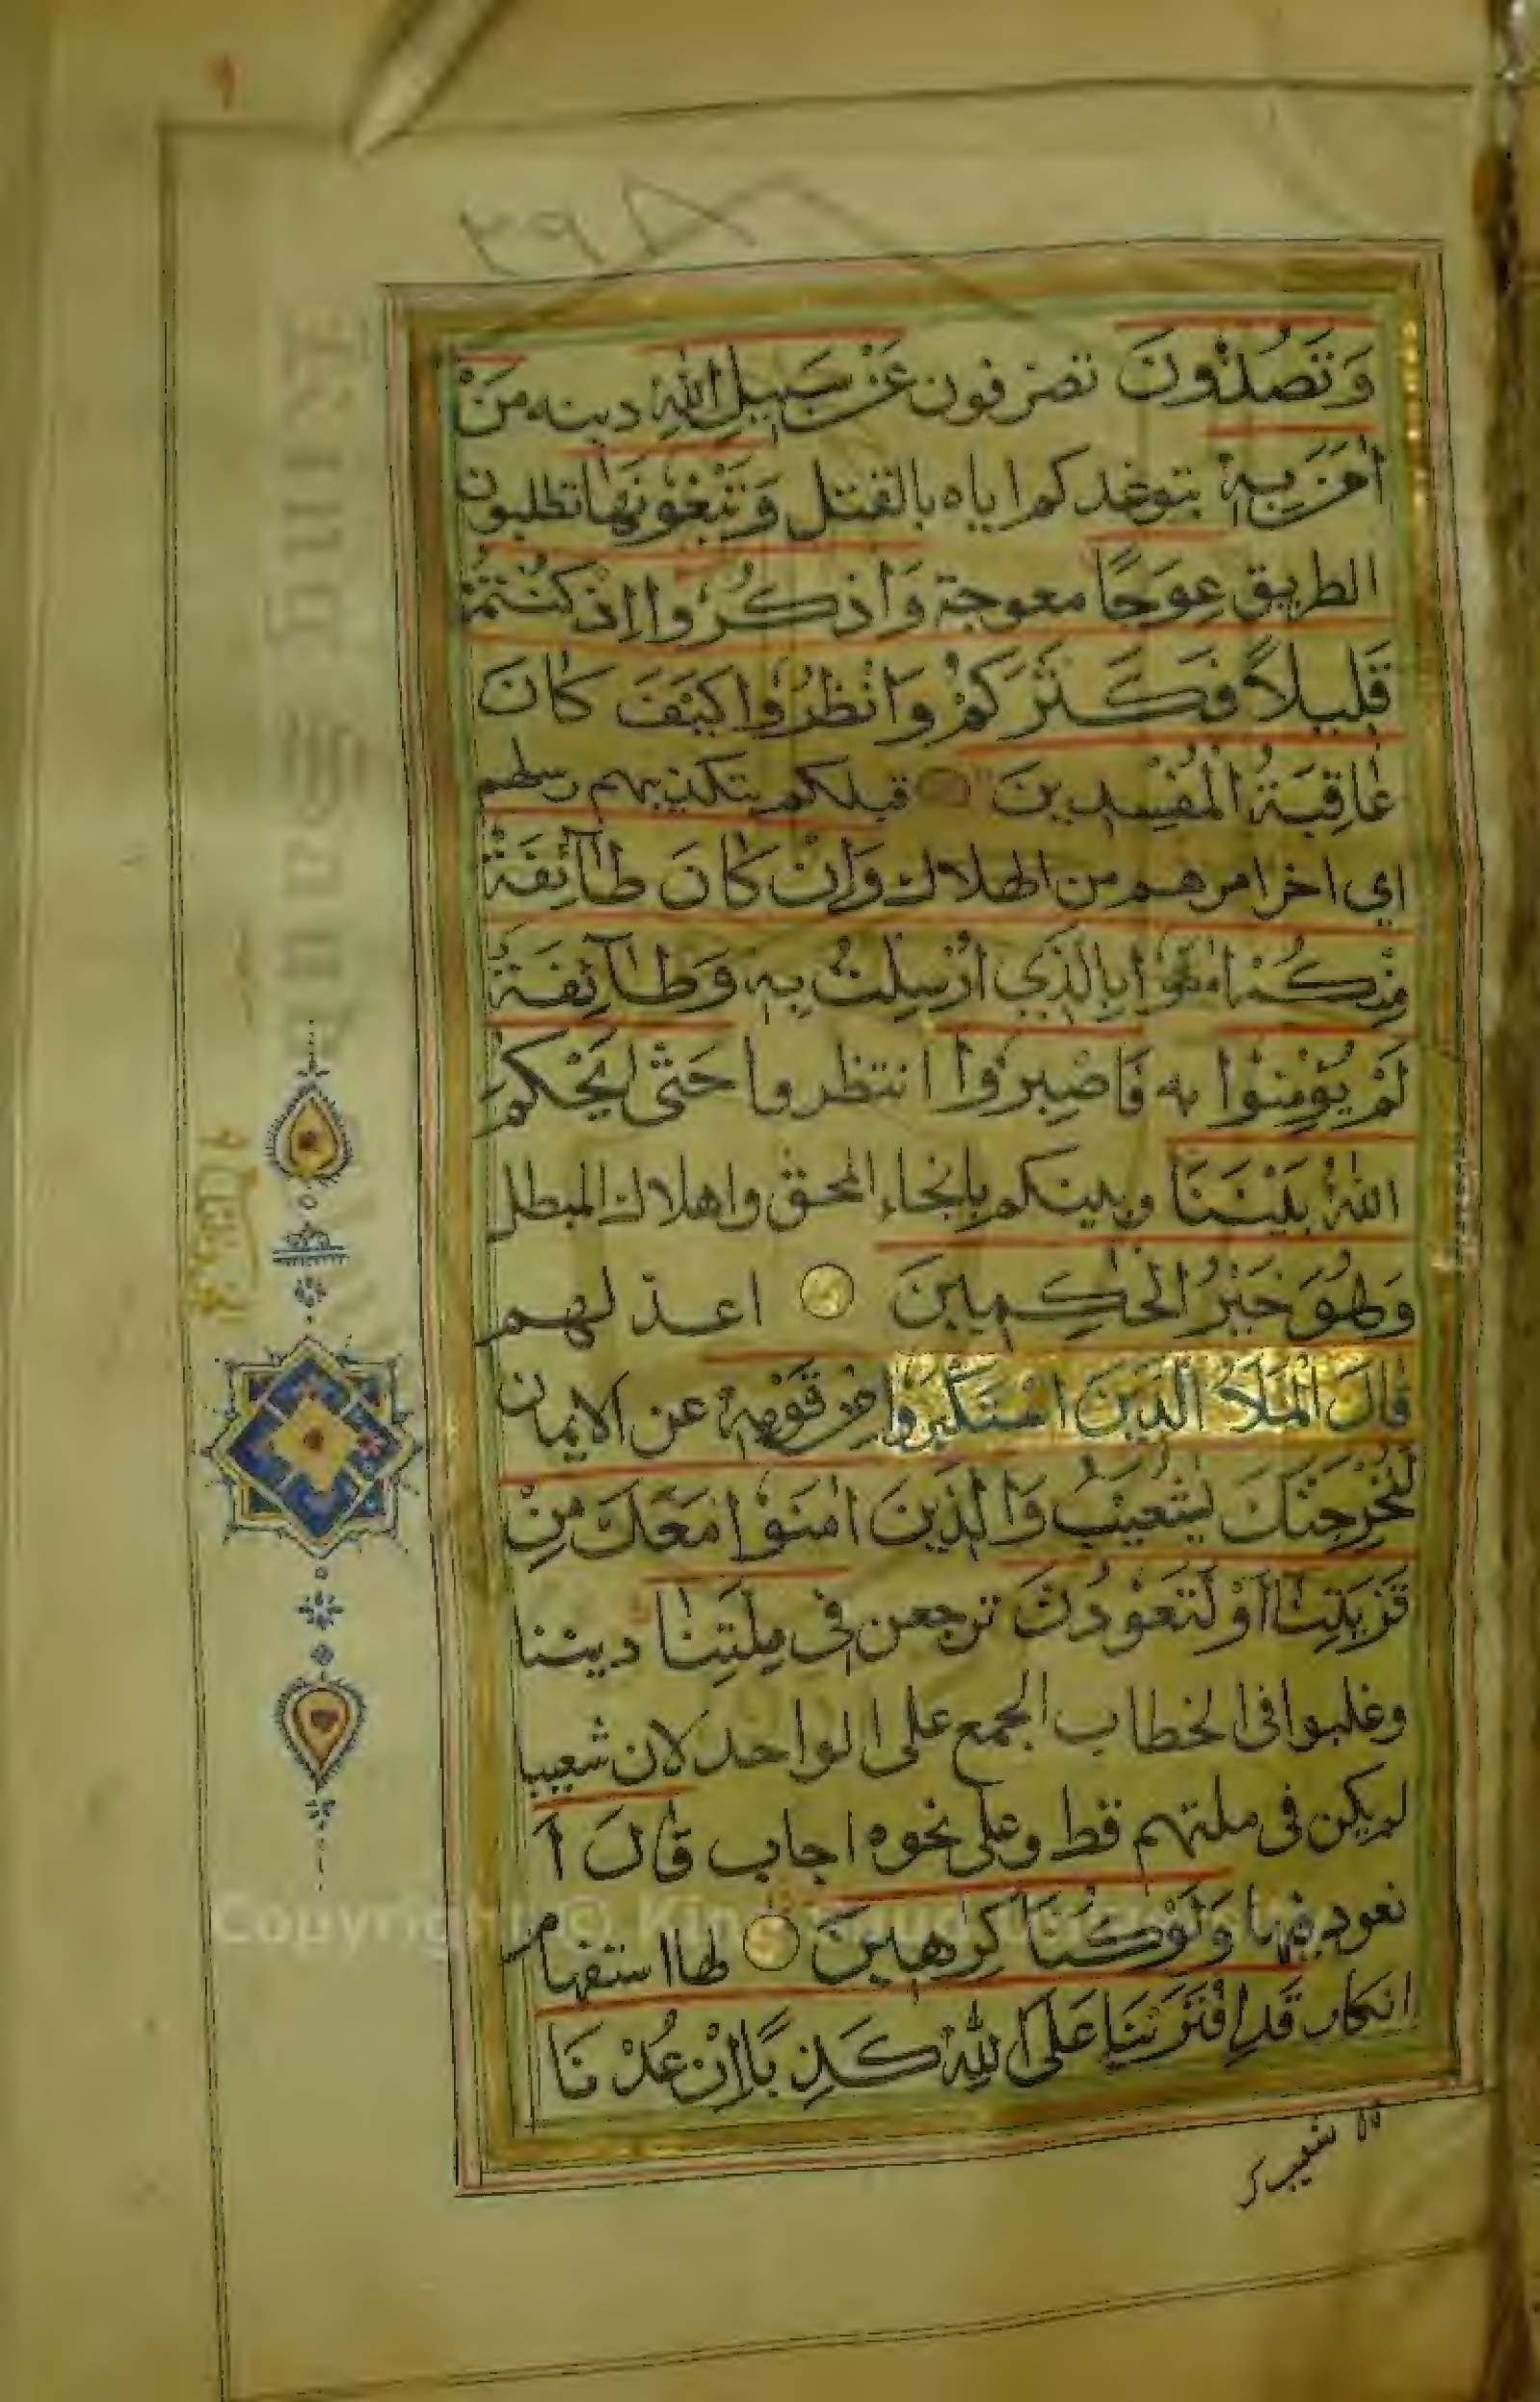 ٩
٢٩٨
وَتَصُدُّونَ تصرفون عَنْ سَبِيلِ اللّٰهِ دينه مَنْ
اٰمَنَ بِهٖ بتوعدكم اياه بالقتل وَتَبْغُونَهَا تطلبون
الطريق عِوَجًا معوجة وَاذْكُرُوا اِذْ كُنْتُمْ
قَلِيلًا فَكَثَّرَكُمْ وَانْظُرُوا كَيْفَ كَانَ
عَاقِبَةُ الْمُفْسِدِينَ قبلكم بتكذيبهم رسلهم
اي اخر امرهم من الهلاك وَاِنْ كَانَ طَآئِفَةٌ
مِنْكُمْ اٰمَنُوا بِالَّذِي اُرْسِلْتُ بِهٖ وَطَآئِفَةٌ
لَمْ يُؤْمِنُوا به فَاصْبِرُوا انتظروا حَتّٰى يَحْكُمَ
اللّٰهُ بَيْنَنَا وبينكم بانجاء المحق واهلاك المبطل
وَهُوَ خَيْرُ الْحٰكِمِينَ اعدلهم
قَالَ الْمَلَاُ الَّذِينَ اسْتَكْبَرُوا مِنْ قَوْمِهٖ عن الايمان
لَنُخْرِجَنَّكَ يٰشُعَيْبُ وَالَّذِينَ اٰمَنُوا مَعَكَ مِنْ
قَرْيَتِنَا اَوْ لَتَعُودُنَّ ترجعن فِي مِلَّتِنَا ديننا
وغلبوا فى الخطاب الجمع على الواحد لان شعيبا
لم يكن فى ملتهم قط وعلى نحوه اجاب قَالَ اَ
نعود فيها وَلَوْ كُنَّا كٰرِهِينَ لها استفهام
انكار قَدِ افْتَرَيْنَا عَلَى اللّٰهِ كَذِبًا اِنْ عُدْنَا
Copyright © King Saud University